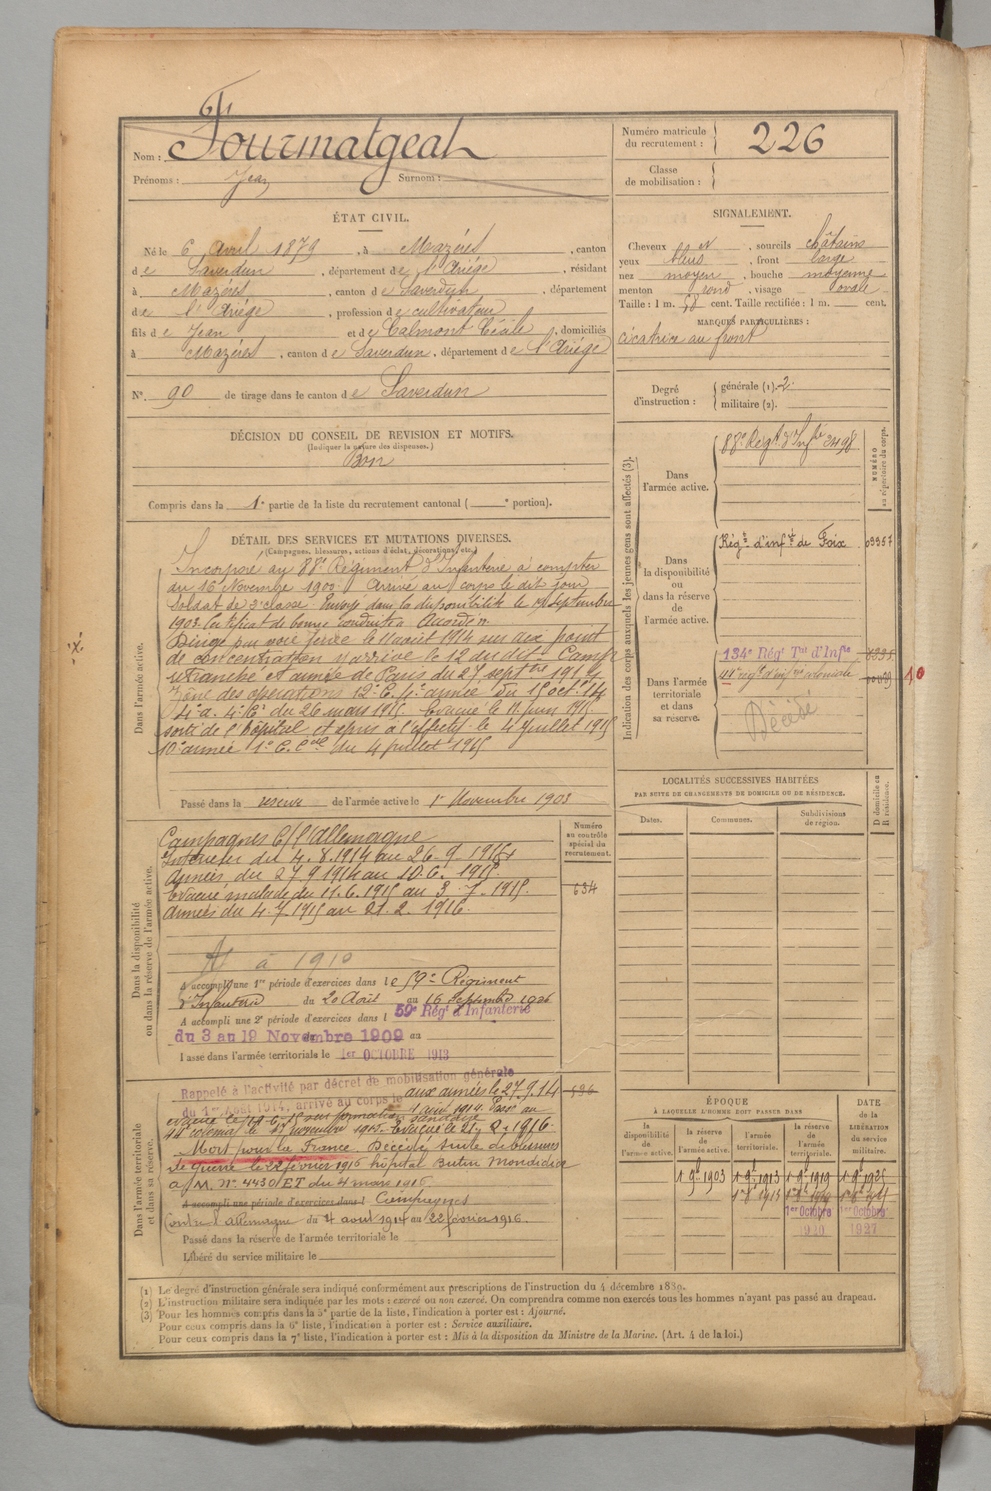 Nom : Fourmatgeat
Prénoms : Jean Surnom :
Numéro matricule du recrutement : 226
Classe de mobilisation :
ÉTAT CIVIL.
Né le 6 Avril 1879, à Mazéres, canton
de Saverdun, département de l'Ariége, résidant
à Mazéres, canton de Saverdun, département
de l'Ariége, profession de cultivateur
fils de Jean et de Calmont Cécile, domiciliés
à Mazéres, canton de Saverdun, département de l'Ariége
N° 90 de tirage dans le canton de Saverdun
SIGNALEMENT.
Cheveux et, sourcils châtains
yeux bleus, front large
nez moyen, bouche moyenne
menton rond, visage ovale
Taille : 1 m. 58 cent. Taille rectifiée : 1 m. cent.
MARQUES PARTICULIÈRES :
cicatrice au front
Degré d'instruction : générale (1). 2.
militaire (2).
DÉCISION DU CONSEIL DE REVISION ET MOTIFS.
(Indiquer la nature des dispenses.)
Bon
Compris dans la 1e partie de la liste du recrutement cantonal ( e portion).
DÉTAIL DES SERVICES ET MUTATIONS DIVERSES.
(Campagnes, blessures, actions d'éclat, décorations, etc.)
Dans l'armée active.
Incorporé au 88e Régiment d'Infanterie à compter
du 16 Novembre 1900. Arrivé au corps le dit jour
Soldat de 2e classe. Envoyé dans la disponibilité le septembre
1903. Certificat de bonne conduite Accordé.
Dirigé par voie ferrée le 11 août 1914 sur point
de concentration y arrive le 12 du dit. Camp
retranché et armée de Paris du 27 septbre 1914
Zône des opérations 12e C. 4e armée du 15 oct. 14
4e a. 4e C. du 26 mars 1915. Evacué le 11 juin 1915
sorti de l'hôpital et repris à l'effectif le 4 juillet 1915
10e armée 1er C. Cal du 4 juillet 1915
Passé dans la réserve de l'armée active le 1er Novembre 1903
Indication des corps auxquels les jeunes gens sont affectés (3).
NUMÉRO au répertoire du corps.
Dans l'armée active.
88e Régt d'Infie 2498
Dans la disponibilité ou dans la réserve de l'armée active.
Régt d'infie de Foix 03357
Dans l'armée territoriale et dans sa réserve.
134e Régt Tal d'Infie
44e régt d'infie coloniale
Décédé
10
Dans la disponibilité ou dans la réserve de l'armée active.
Campagnes C/ l'Allemagne
Intérieur du 4.8.1914 au 26.9.1914
Armées du 27.9.1914 au 10.6.1915
Evacué malade du 11.6.1915 au 3.7.1915
Armées du 4.7.1915 au 21.2.1916
à 1910
A accompli une 1re période d'exercices dans le 59e Régiment
d'Infanterie du 20 Août au 16 Septembre 1906
A accompli une 2e période d'exercices dans l 59e Régt d'Infanterie
du 3 au 19 Novembre 1909 au
Passé dans l'armée territoriale le 1er OCTOBRE 1913
Numéro au contrôle spécial du recrutement.
634
LOCALITÉS SUCCESSIVES HABITÉES
PAR SUITE DE CHANGEMENTS DE DOMICILE OU DE RÉSIDENCE.
Dates. Communes. Subdivisions de région. D domicile ou R résidence.
Dans l'armée territoriale et dans sa réserve.
Rappelé à l'activité par décret de mobilisation générale
du 1er Août 1914, arrivé au corps le aux armées le 27.9.14
4 août 1914. Passé au
44e colonial le 27 novembre 1915. Evacué le 21.2.1916.
Mort pour la France. Décédé suite de blessures
de guerre le 22 février 1916 hôpital Mondidier
a/M. n° 4430 ET du 4 mars 1916
A accompli une période d'exercices dans l Campagnes
Contre l'Allemagne du 4 août 1914 au 22 février 1916.
Passé dans la réserve de l'armée territoriale le
Libéré du service militaire le
596
ÉPOQUE
À LAQUELLE L'HOMME DOIT PASSER DANS
la disponibilité de l'armée active. la réserve de l'armée active. l'armée territoriale. la réserve de l'armée territoriale.
DATE de la LIBÉRATION du service militaire.
1er 9b 1903 1er 9b 1913 1er 9b 1919 1er 9b 1925
1er 8b 1913
1er Octobre 1920
1er Octobre 1927
(1) Le degré d'instruction générale sera indiqué conformément aux prescriptions de l'instruction du 4 décembre 1889.
(2) L'instruction militaire sera indiquée par les mots : exercé ou non exercé. On comprendra comme non exercés tous les hommes n'ayant pas passé au drapeau.
(3) Pour les hommes compris dans la 5e partie de la liste, l'indication à porter est : Ajourné.
Pour ceux compris dans la 6e liste, l'indication à porter est : Service auxiliaire.
Pour ceux compris dans la 7e liste, l'indication à porter est : Mis à la disposition du Ministre de la Marine. (Art. 4 de la loi.)